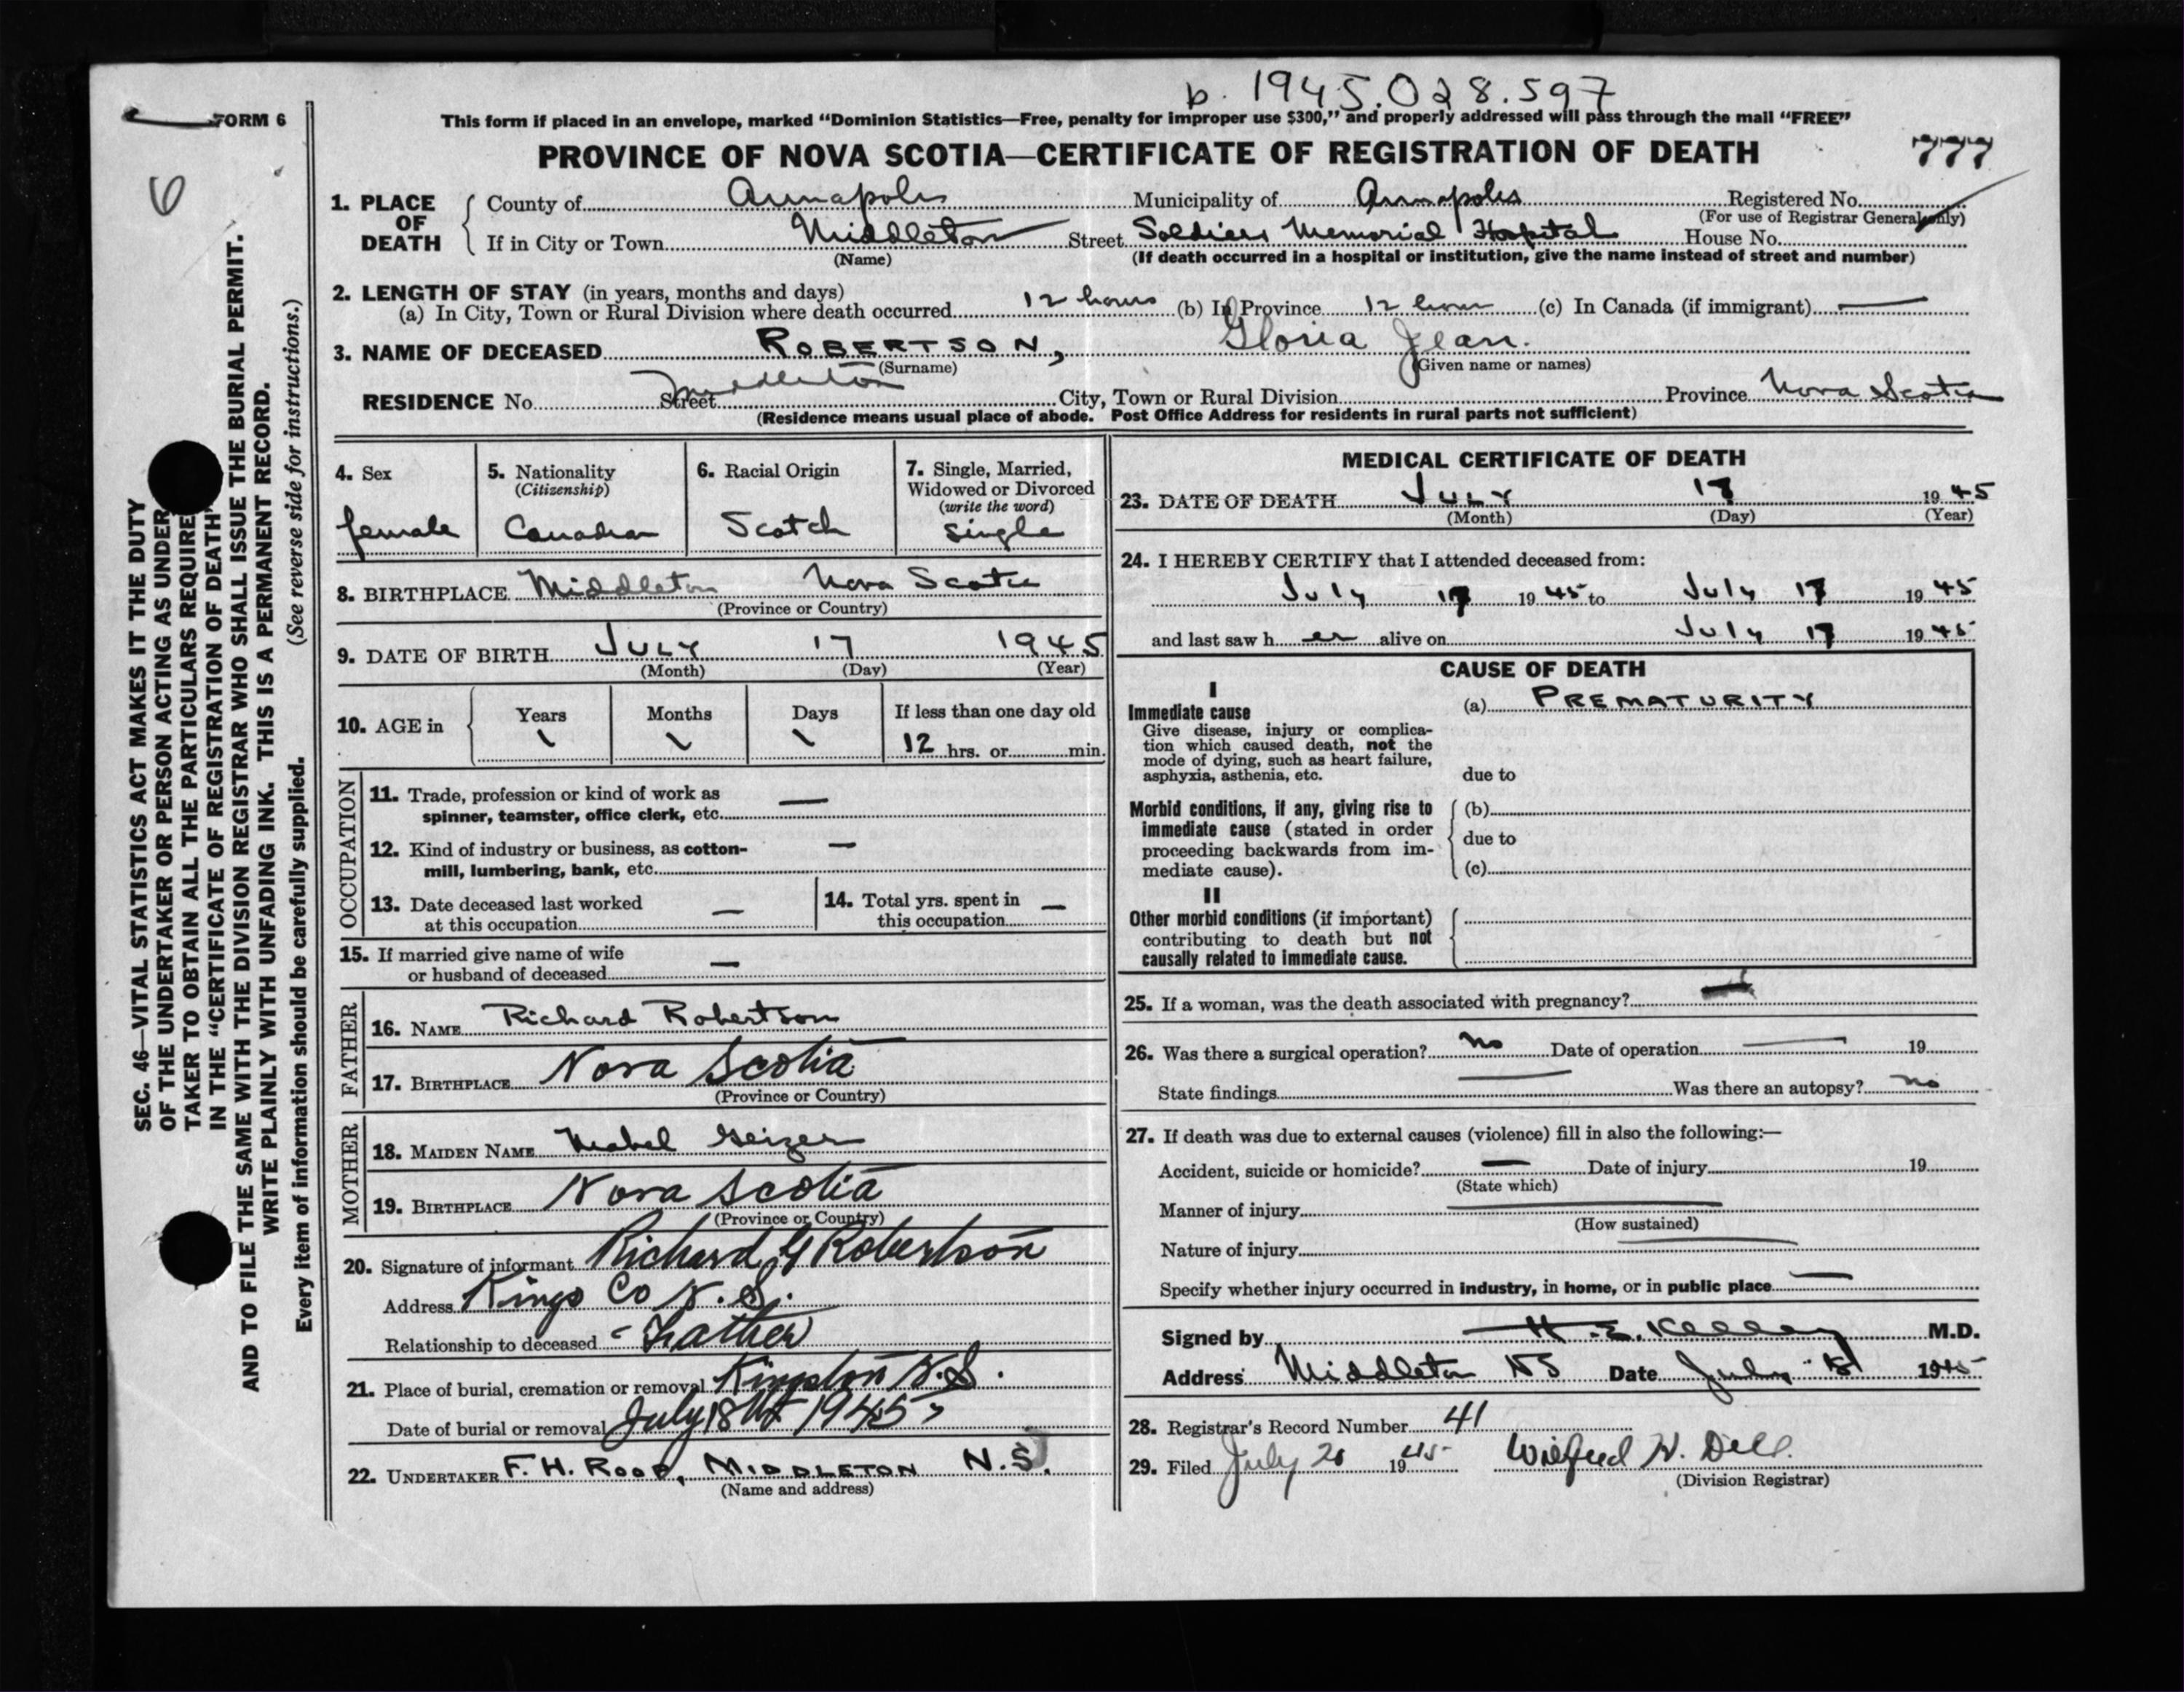 b. 1945.028.597
FORM 6
This form if placed in an envelope, marked “Dominion Statistics—Free, penalty for improper use $300,” and properly addressed will pass through the mail “FREE”
PROVINCE OF NOVA SCOTIA—CERTIFICATE OF REGISTRATION OF DEATH
777
6
1. PLACE OF DEATH
County of Annapolis Municipality of Annapolis Registered No.
(For use of Registrar General only)
If in City or Town Middleton Street Soldiers Memorial Hospital House No.
(Name) (If death occurred in a hospital or institution, give the name instead of street and number)
2. LENGTH OF STAY (in years, months and days)
(a) In City, Town or Rural Division where death occurred 12 hours (b) In Province 12 hour (c) In Canada (if immigrant) —
3. NAME OF DECEASED ROBERTSON, Gloria Jean.
(Surname) (Given name or names)
RESIDENCE No. Street Middleton City, Town or Rural Division Province Nova Scotia
(Residence means usual place of abode. Post Office Address for residents in rural parts not sufficient)
4. Sex
female
5. Nationality
(Citizenship)
Canadian
6. Racial Origin
Scotch
7. Single, Married,
Widowed or Divorced
(write the word)
Single
8. BIRTHPLACE Middleton Nova Scotia
(Province or Country)
9. DATE OF BIRTH JULY 17 1945
(Month) (Day) (Year)
10. AGE in Years Months Days If less than one day old
\ \ \ 12 hrs. or min.
OCCUPATION
11. Trade, profession or kind of work as
spinner, teamster, office clerk, etc. —
12. Kind of industry or business, as cotton-
mill, lumbering, bank, etc. —
13. Date deceased last worked
at this occupation —
14. Total yrs. spent in
this occupation —
15. If married give name of wife
or husband of deceased —
FATHER
16. NAME Richard Robertson
17. BIRTHPLACE Nova Scotia
(Province or Country)
MOTHER
18. MAIDEN NAME Mabel Geizer
19. BIRTHPLACE Nova Scotia
(Province or Country)
20. Signature of informant Richard G Robertson
Address Kings Co N.S.
Relationship to deceased - Father
21. Place of burial, cremation or removal Kingston N.S.
Date of burial or removal July 18th 1945
22. UNDERTAKER F. H. ROOP, MIDDLETON N.S.
(Name and address)
MEDICAL CERTIFICATE OF DEATH
23. DATE OF DEATH JULY 17 1945
(Month) (Day) (Year)
24. I HEREBY CERTIFY that I attended deceased from:
July 17 1945 to July 17 1945
and last saw her alive on July 17 1945
CAUSE OF DEATH
I
Immediate cause
Give disease, injury or complica-
tion which caused death, not the
mode of dying, such as heart failure,
asphyxia, asthenia, etc.
(a) PREMATURITY
due to
Morbid conditions, if any, giving rise to
immediate cause (stated in order
proceeding backwards from im-
mediate cause).
(b)
due to
(c)
II
Other morbid conditions (if important)
contributing to death but not
causally related to immediate cause.
25. If a woman, was the death associated with pregnancy?
26. Was there a surgical operation? no Date of operation — 19
State findings — Was there an autopsy? no
27. If death was due to external causes (violence) fill in also the following:—
Accident, suicide or homicide? — Date of injury 19
(State which)
Manner of injury —
(How sustained)
Nature of injury —
Specify whether injury occurred in industry, in home, or in public place —
Signed by H. E. Kelley M.D.
Address Middleton NS Date July 18 1945
28. Registrar's Record Number 41
29. Filed July 20 1945 Wilfred H. Dell.
(Division Registrar)
SEC. 46—VITAL STATISTICS ACT MAKES IT THE DUTY
OF THE UNDERTAKER OR PERSON ACTING AS UNDER
TAKER TO OBTAIN ALL THE PARTICULARS REQUIRE
IN THE “CERTIFICATE OF REGISTRATION OF DEATH”
AND TO FILE THE SAME WITH THE DIVISION REGISTRAR WHO SHALL ISSUE THE BURIAL PERMIT.
WRITE PLAINLY WITH UNFADING INK. THIS IS A PERMANENT RECORD.
Every item of information should be carefully supplied. (See reverse side for instructions.)